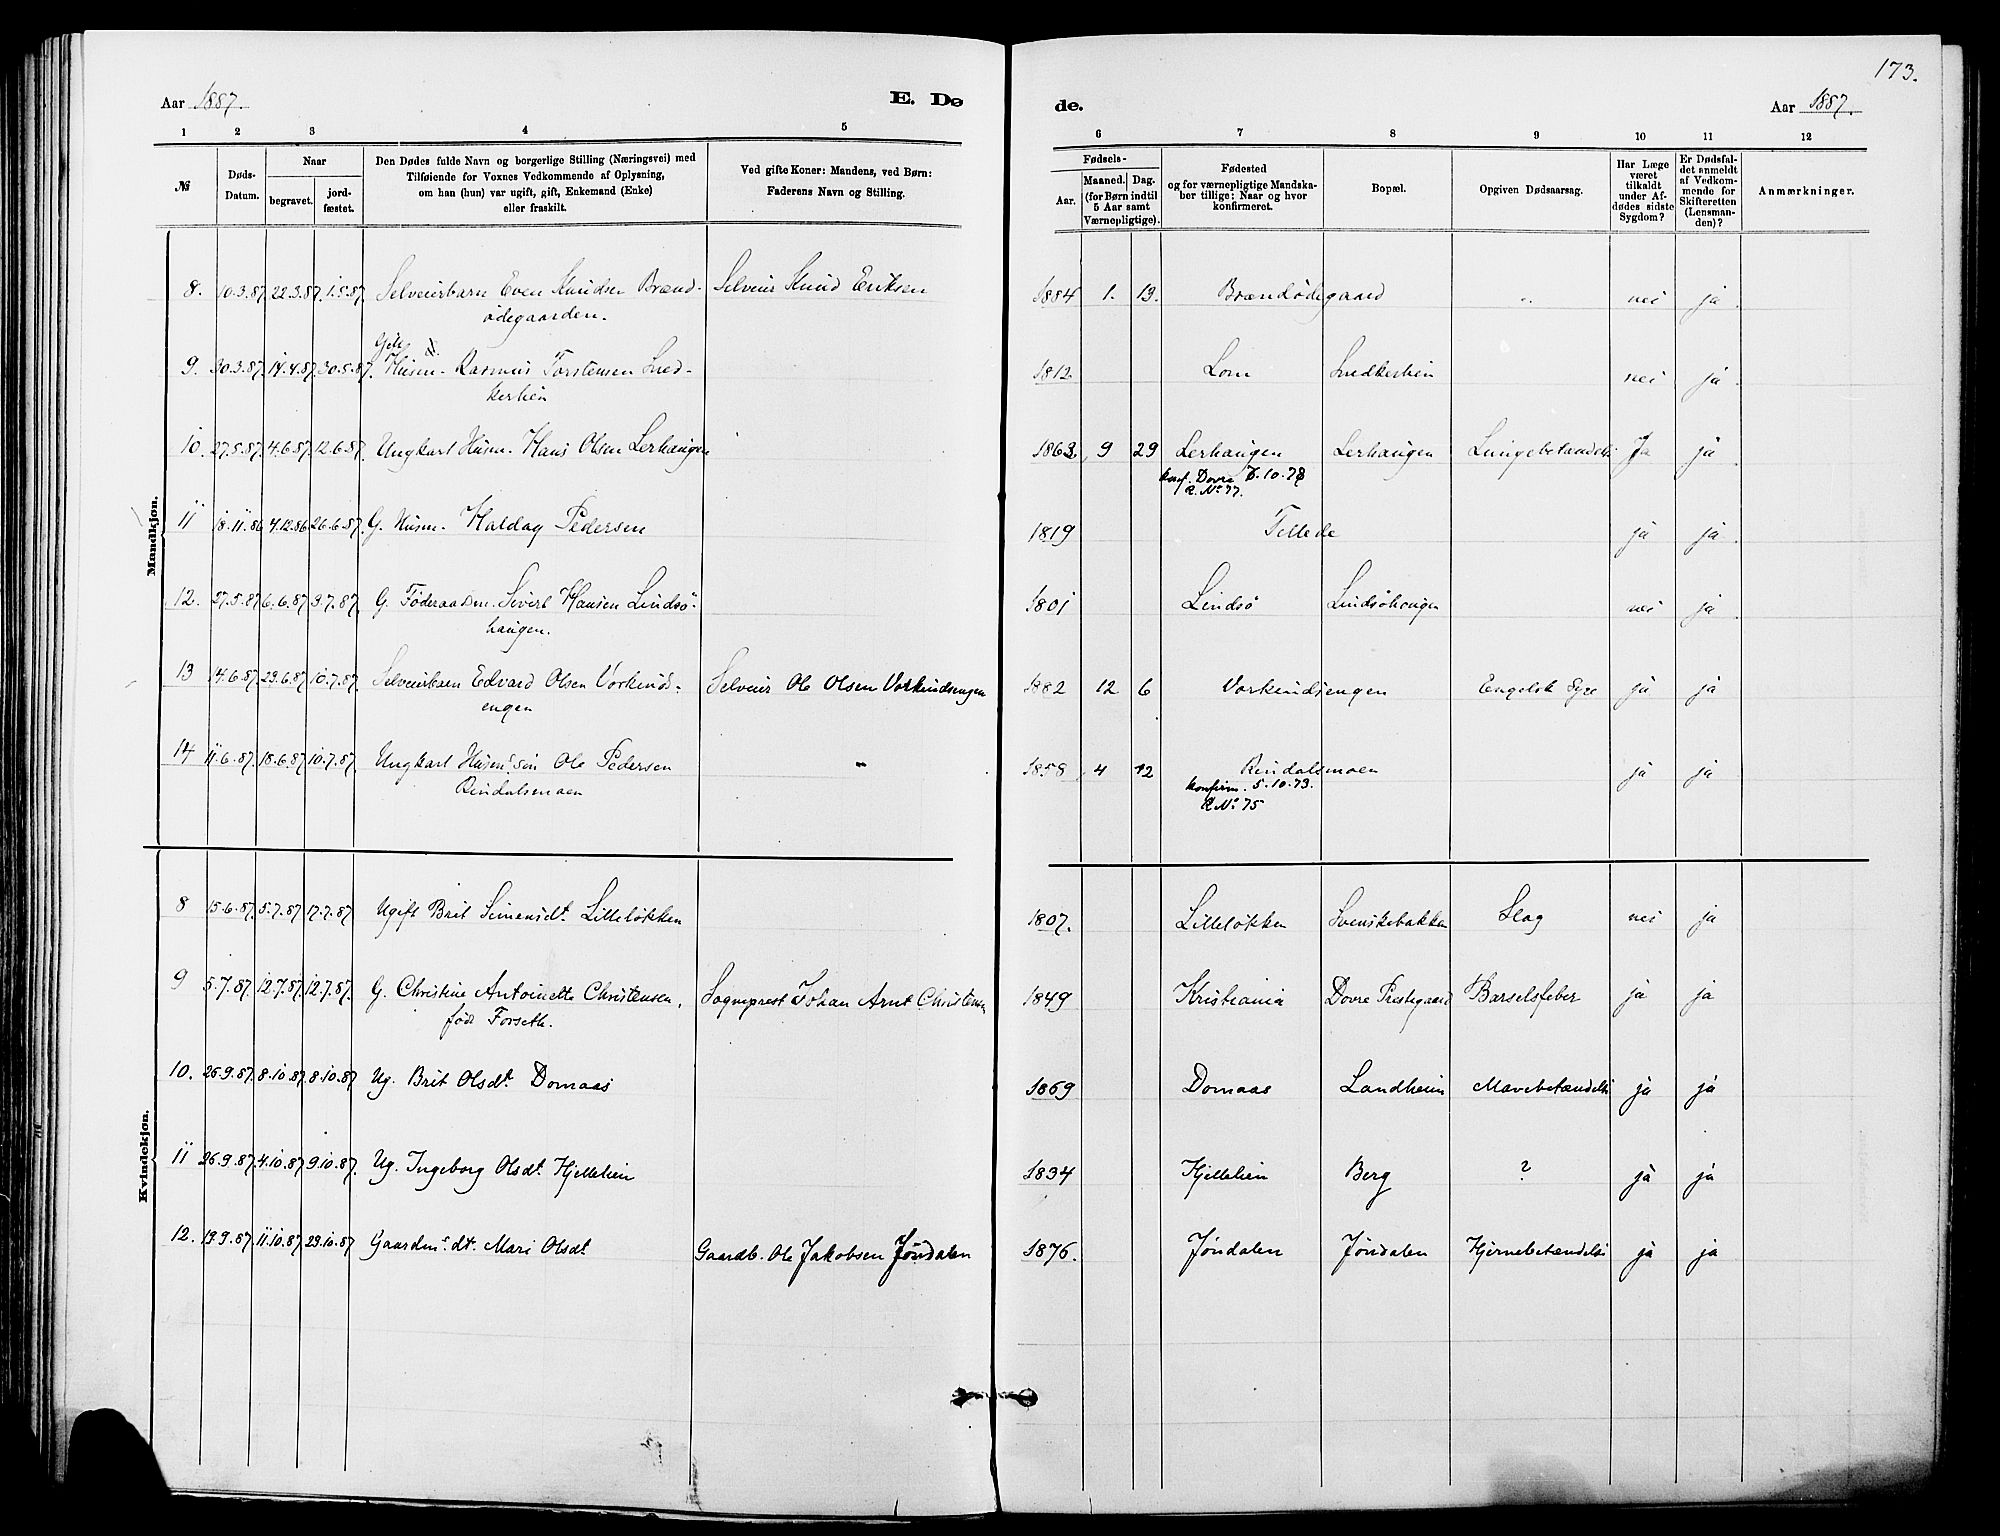 173.
Aar 1887.
E. Dø
de.
Aar 1887.
1 2 3 4 5 6 7 8 9 10 11 12
№
Døds-Datum.
Naar
begravet.
jordfæstet.
Den Dødes fulde Navn og borgerlige Stilling (Næringsvei) med
Tilføiende for Voxnes Vedkommende af Oplysning,
om han (hun) var ugift, gift, Enkemand (Enke)
eller fraskilt.
Ved gifte Koner: Mandens, ved Børn:
Faderens Navn og Stilling.
Fødsels-
Aar.
Maaned. Dag.
(for Børn indtil
5 Aar samt
Værnepligtige).
Fødested
og for værnepligtige Mandska-
ber tillige; Naar og hvor
konfirmeret.
Bopæl.
Opgiven Dødsaarsag.
Har Læge
været
tilkaldt
under Af-
dødes sidste
Sygdom?
Er Dødsfal-
det anmeldt
af Vedkom-
mende for
Skifteretten
(Lensman-
den)?
Anmærkninger.
Mandkjøn.
8. 10.3.87. 22.3.87. 1.5.87. Selveierbarn Even Knudsen Brænd- Selveier Knud Eriksen 1884 1. 13. Brændødegaard " nei ja
ødegaarden.
9. 30.3.87. 14.4.87. 30.5.87. Husm. Rasmus Torstensen Sned- 1812. Lom Snedkerlien nei ja
kerlien
10. 27.5.87. 4.6.87. 12.6.87. Ungkarl Husm. Hans Olsen Lerhaugen 1863 9 29 Lerhaugen Lerhaugen Lungebetændelse Ja ja
konf. Dovre 6.10.78
R. No 77.
11 18.11.86 4.12.86 26.6.87. G. Husm. Haldag Pedersen 1819 Tellede ja ja
12. 27.5.87 6.6.87 3.7.87. G. Føderaadsm. Sivert Hansen Lindsø- 1801 Lindsø Lindsøhaugen nei ja
haugen.
13 14.6.87. 23.6.87 10.7.87. Selveierbarn Edvard Olsen Vorkinds- Selveier Ole Olsen Vorkindsengen 1882 12 6 Vorkindsengen Engelsk Syge ja ja
engen
14 11.6.87. 18.6.87 10.7.87. Ungkarl Husm.s søn Ole Pedersen - 1858 4 12 Rindalsmoen ja ja
Rindalsmoen konfirm. 5.10.73.
R No 75
Kvindekjøn.
8 15.6.87. 5.7.87 17.7.87 Ugift Brit Simensdt. Lilleløkken 1807. Lilleløkken Svenskebakken Slag nei ja
9 5.7.87. 12.7.87. 12.7.87. G. Christine Antoinette Christensen, Sogneprest Johan Arnt Christensen 1849 Kristiania Dovre Prestegaard Barselsfeber ja ja
født Forseth.
10. 26.9.87. 8.10.87 8.10.87 Ug. Brit Olsdt. Domaas 1869 Domaas Landheim Mavebetændelse ja ja
11 26.9.87. 4.10.87 9.10.87. Ug. Ingeborg Olsdt. Hjellelien 1834 Hjellelien Berg ? ja ja
12. 19.9.87. 11.10.87 23.10.87 Gaardm.s dt. Mari Olsdt Gaardb. Ole Jakobsen Jøndalen 1876. Jøndalen Jøndalen Hjernebetændelse ja ja